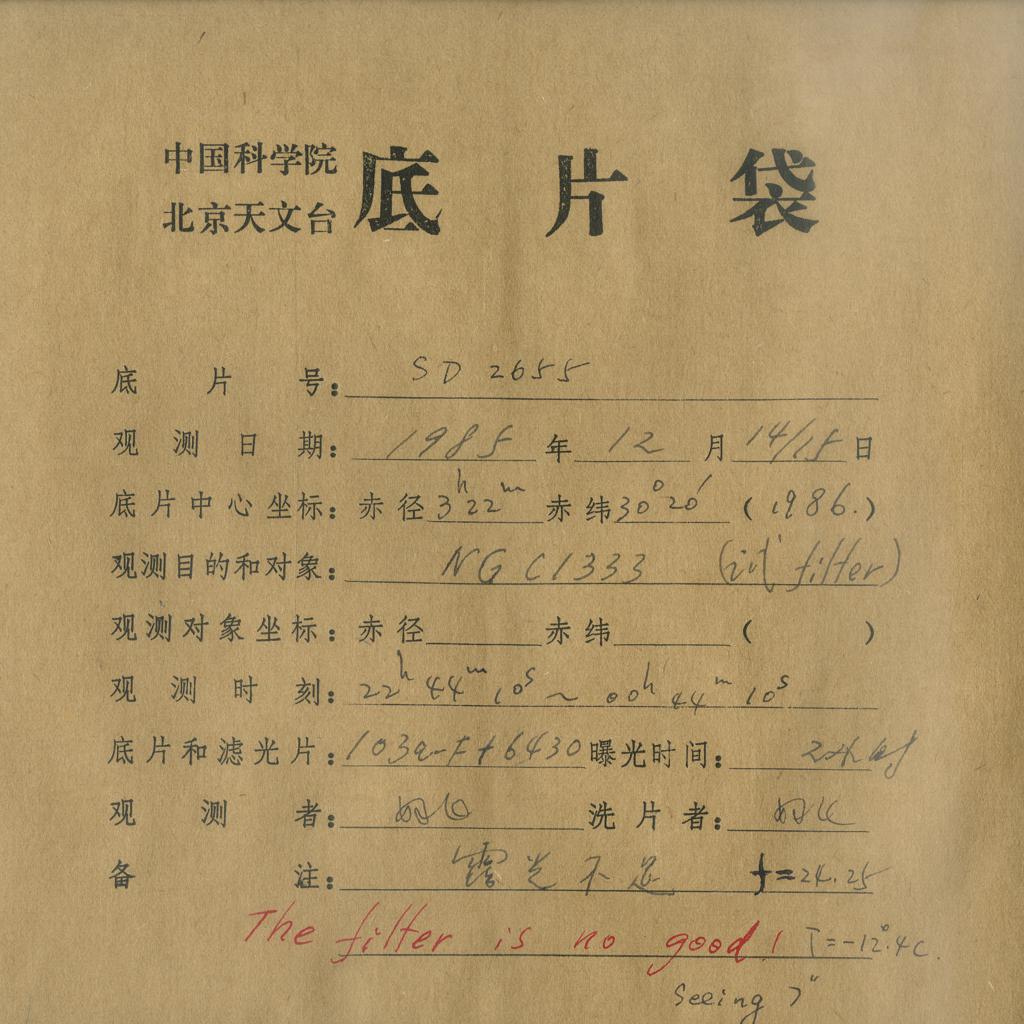 中国科学院
北京天文台 底片袋
底片号: SD 2655
观测日期: 1985年12月14/15日
底片中心坐标: 赤径 3h22m 赤纬 30°20′ (1986.)
观测目的和对象: NGC1333 (试 filter)
观测对象坐标: 赤径 赤纬 ( )
观测时刻: 22h44m10s ~ 00h44m10s
底片和滤光片: 103a-F+6430 曝光时间: 2小时
观测者: 洗片者:
备注: 露光不足 f=24.25
The filter is no good! T=-12°.4C.
Seeing 7"